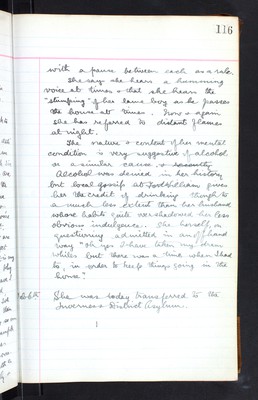 116
with a pause between each as a rule.
She says she hears a humming
voice at times & that she hears the
"stumping" of her lame boy as he passes
the house at times. Now & again
she has referred to distant flames
at night.
The nature & content of her mental
condition is very suggestive of alcohol
or a similar cause,
Alcohol was denied in her history
but local gossip at gives
her the credit of drinking though to
a much less extent than her husband
whose habits quite overshadowed her less
obvious indulgence. She herself, on
questioning admitted in an offhand
way "oh yes I have taken my dram
whiles but there was a time when I had
to, in order to keep things going in the
house."
She was today transferred to the
Inverness District Asylum.